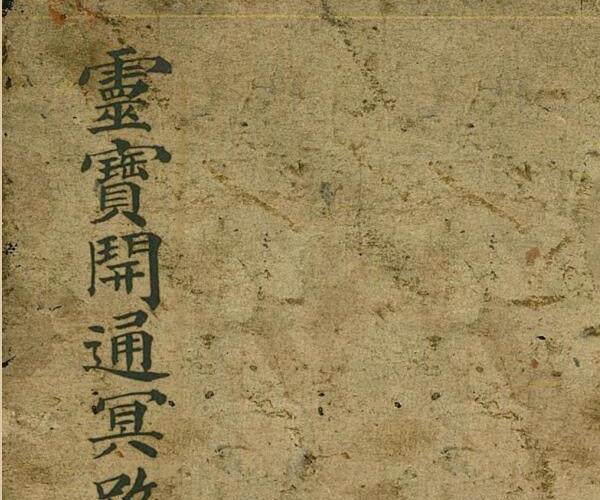 靈寶開通冥路